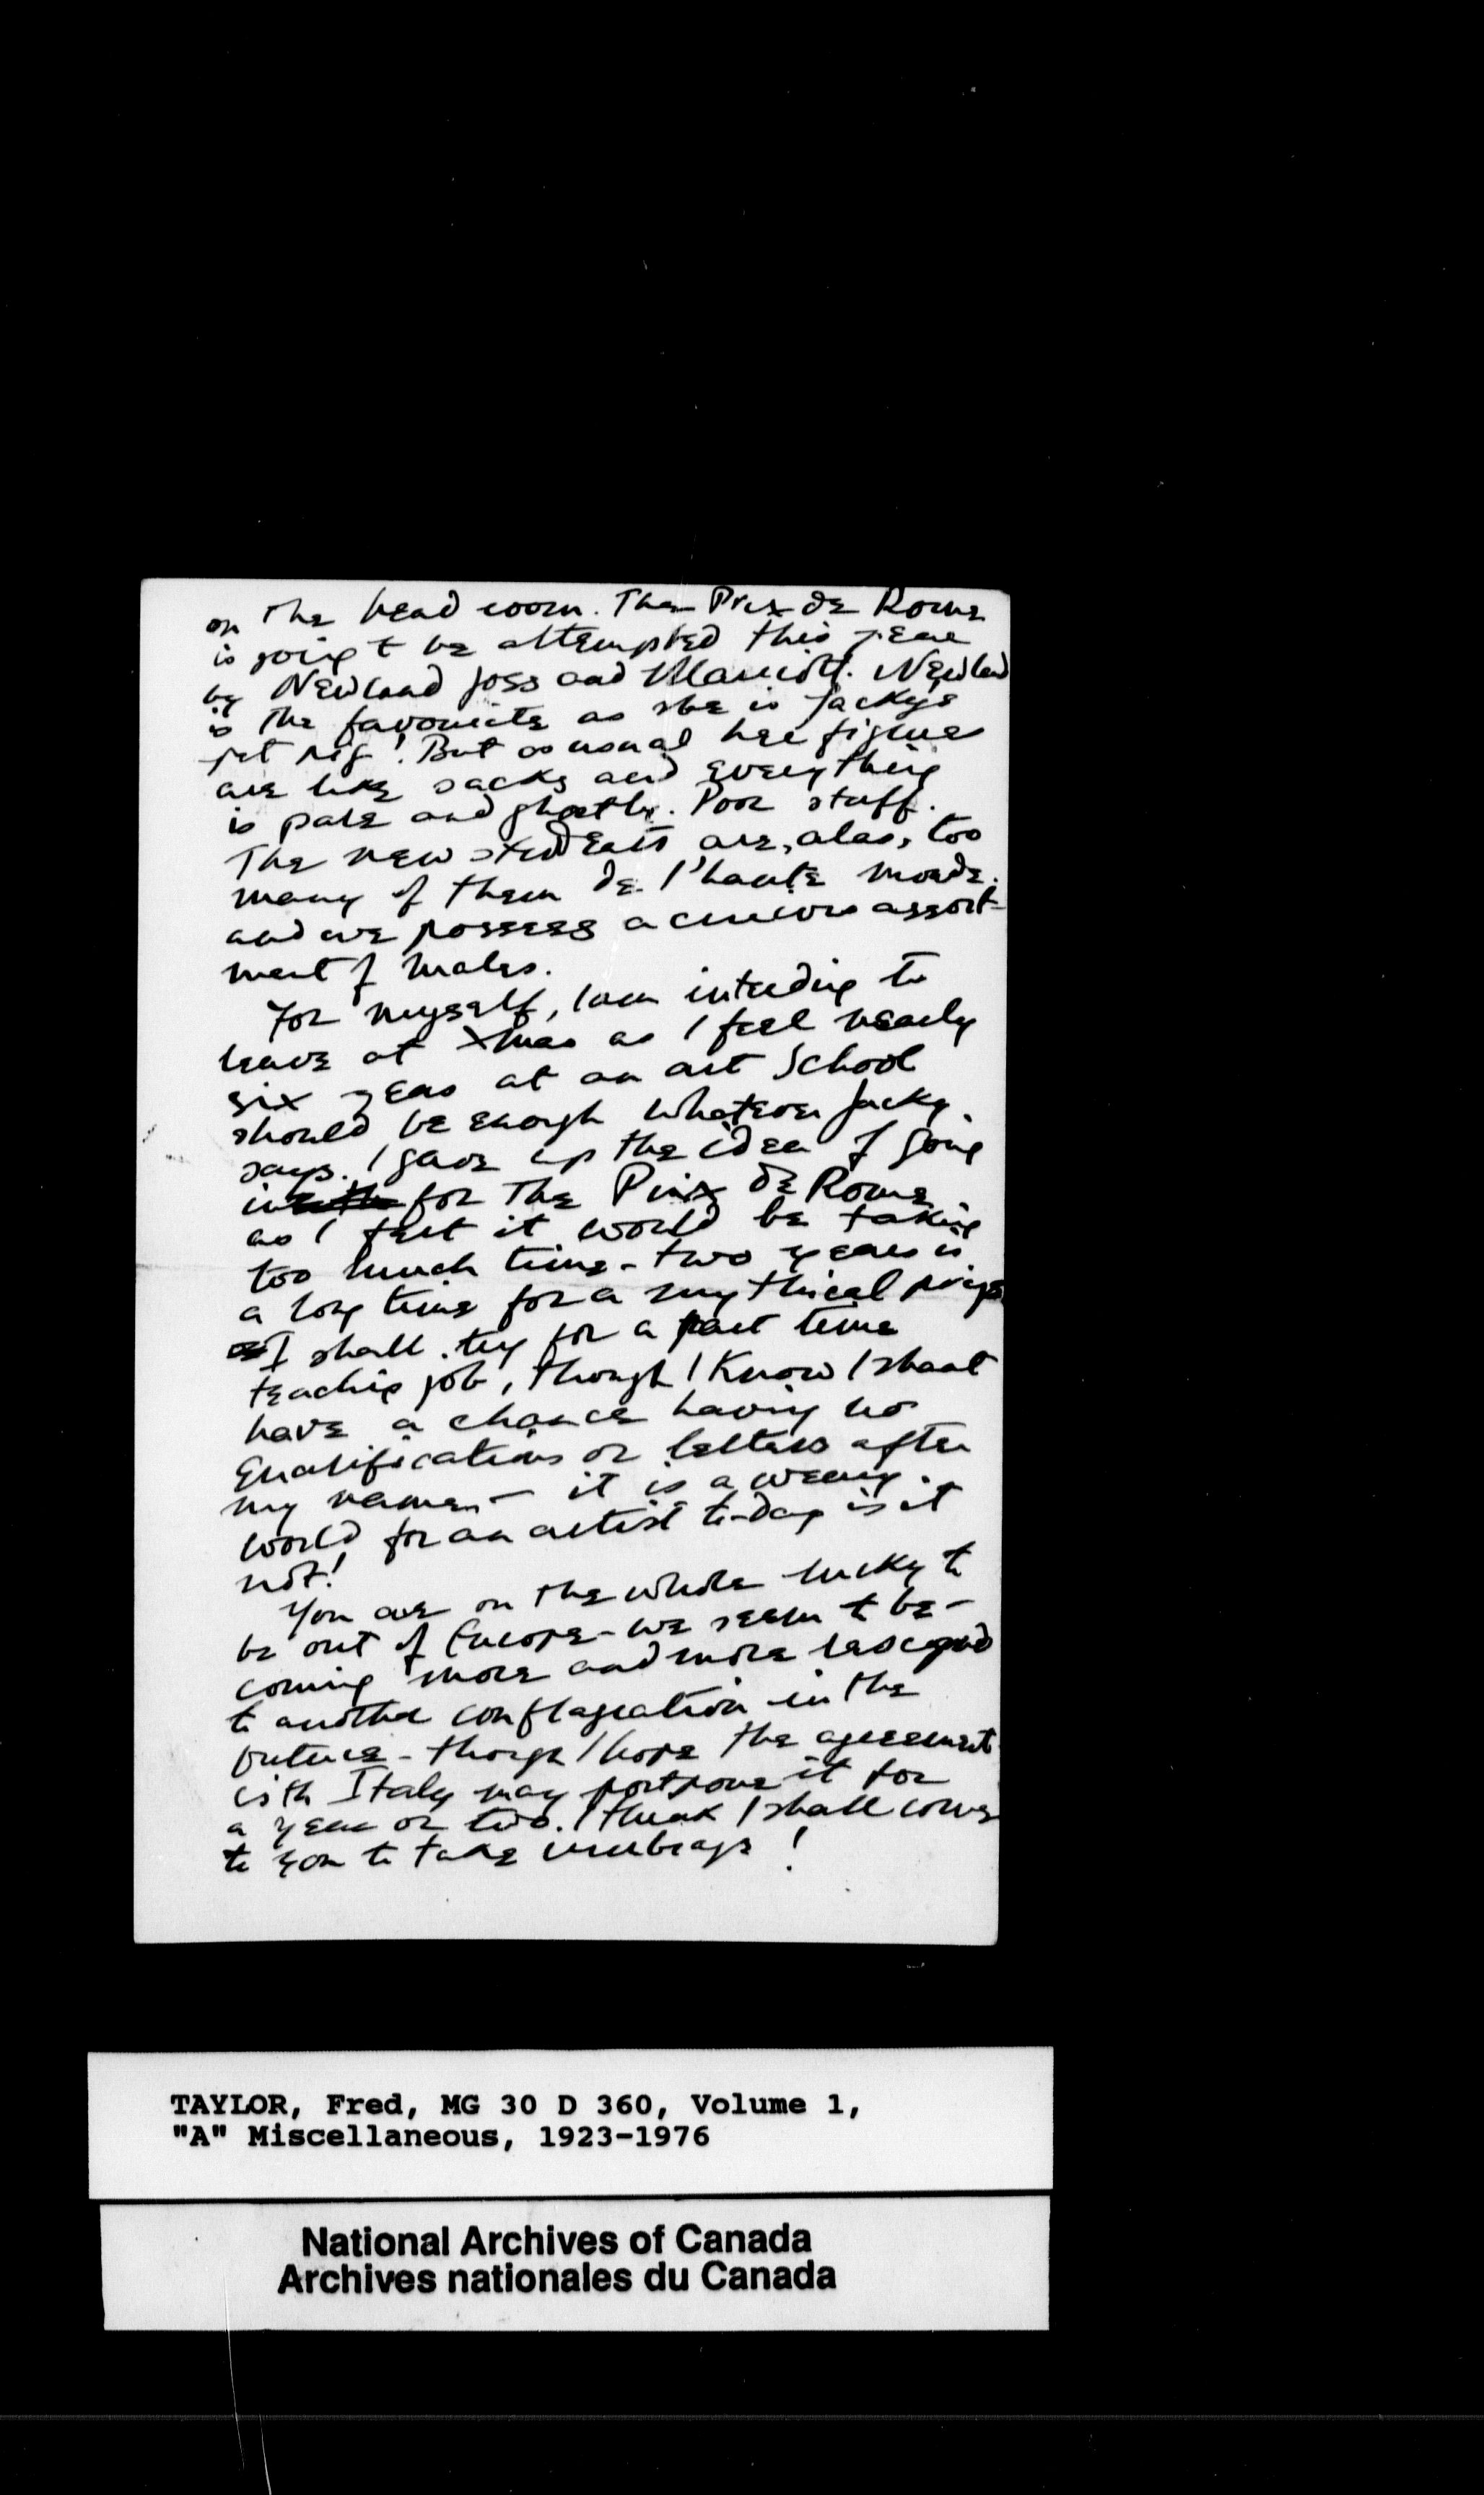 on the head room. The Prix de Rome
is going to be attempted this year
by Newland Joss and Marriott. Newland
is the favourite as she is Jacky's
pet pig! But as usual her figures
are like sacks and everything
is pale and ghostly. Poor stuff.
The new students are, alas, too
many of them de l'haute monde.
and we possess a curious assort-
ment of males.
For myself, I am intending to
leave at Xmas as I feel nearly
six years at an art School
should be enough whatever Jacky
says. I gave up the idea of going
in for the Prix de Rome
as I felt it would be taking
too much time - two years is
a long time for a mythical prize
I shall try for a part time
teaching job, though I know I shant
have a chance having no
qualifications or letters after
my name - it is a weary
world for an artist to-day is it
not!
You are on the whole lucky to
be out of Europe - we seem to be-
coming more and more
to another conflagration in the
future - though I hope the agreement
with Italy may postpone it for
a year or two. I think I shall come
to you to take umbrage!
TAYLOR, Fred, MG 30 D 360, Volume 1,
"A" Miscellaneous, 1923-1976
National Archives of Canada
Archives nationales du Canada